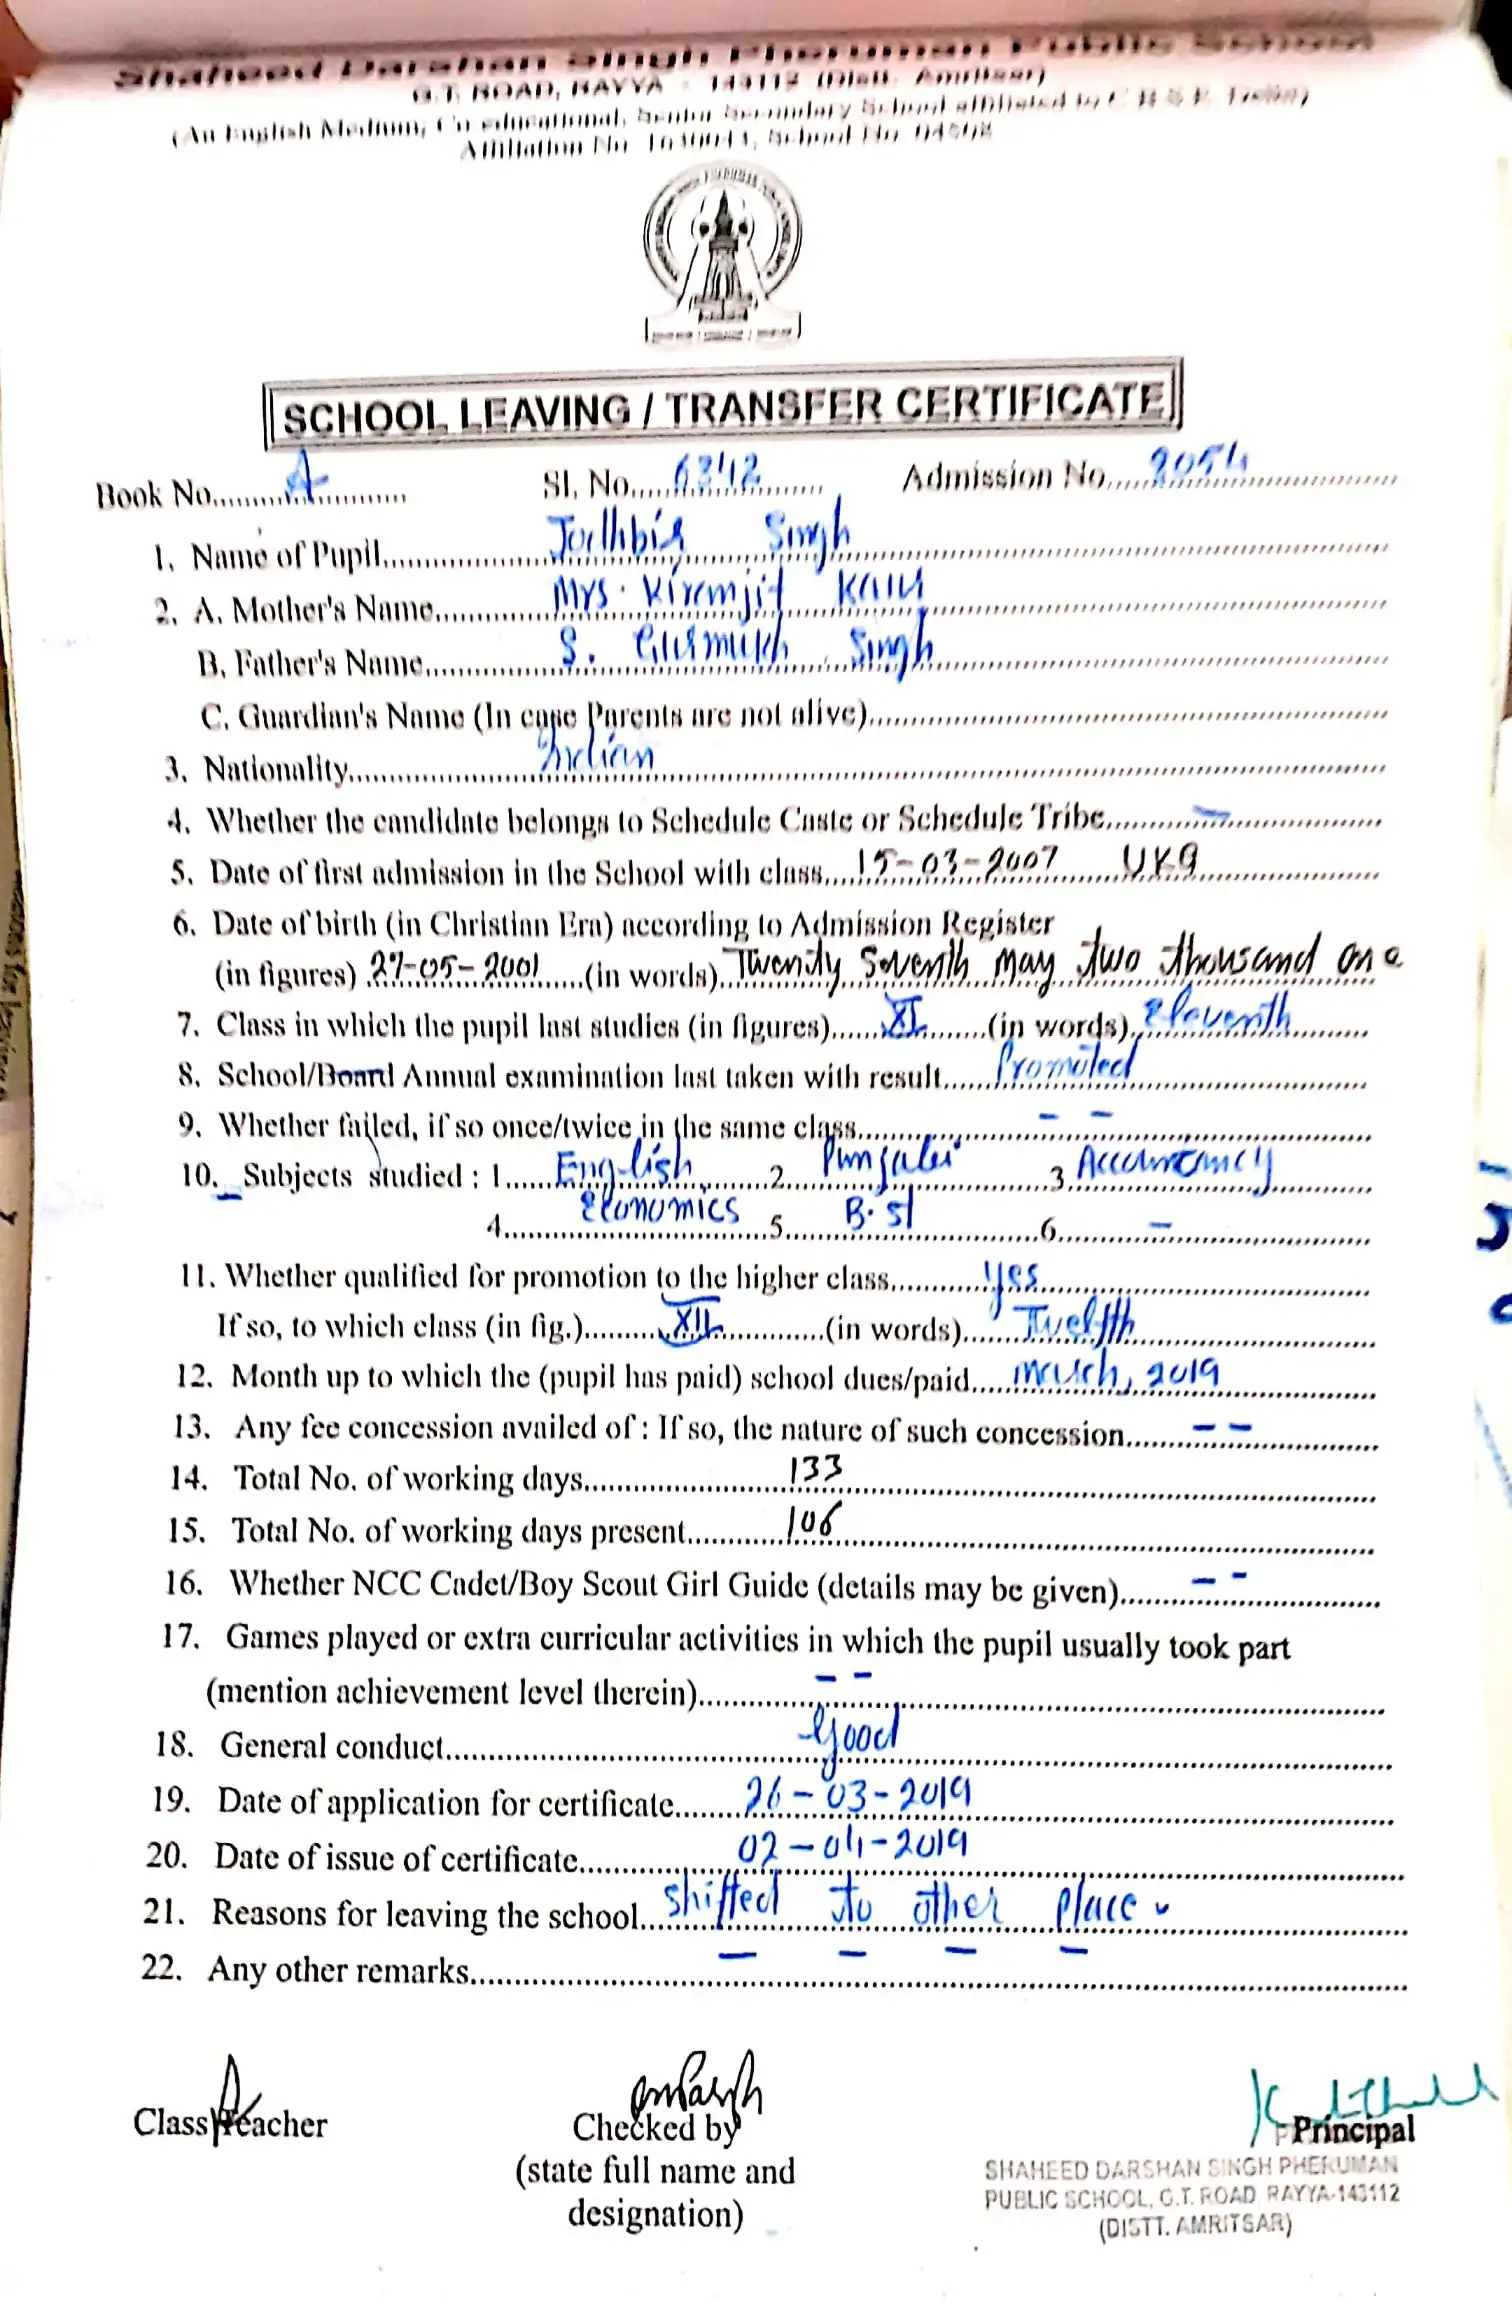 Shaheed Darshan Singh Pheruman Public School
G.T. ROAD, RAYYA - 143112 (Distt. Amritsar)
(An English Medium, Co-educational, Senior Secondary School affiliated to C.B.S.E.
Affiliation No. 1630043, School No. 04508
SCHOOL LEAVING / TRANSFER CERTIFICATE
Book No. A Sl. No. 6342 Admission No. 2054
1. Name of Pupil Jodhbir Singh
2. A. Mother's Name Mrs. Kiremjit Kaur
B. Father's Name S. Gurmukh Singh
C. Guardian's Name (In case Parents are not alive)
3. Nationality Indian
4. Whether the candidate belongs to Schedule Caste or Schedule Tribe —
5. Date of first admission in the School with class 15-03-2007 UKG
6. Date of birth (in Christian Era) according to Admission Register
(in figures) 27-05-2001 (in words) Twenty Seventh May Two thousand one
7. Class in which the pupil last studies (in figures) XI (in words) Eleventh
8. School/Board Annual examination last taken with result Promoted
9. Whether failed, if so once/twice in the same class – –
10. Subjects studied : 1 English 2 Punjabi 3 Accountancy
4 Economics 5 B.st 6 –
11. Whether qualified for promotion to the higher class Yes
If so, to which class (in fig.) XII (in words) Twelfth
12. Month up to which the (pupil has paid) school dues/paid March, 2019
13. Any fee concession availed of : If so, the nature of such concession – –
14. Total No. of working days 133
15. Total No. of working days present 106
16. Whether NCC Cadet/Boy Scout Girl Guide (details may be given) – –
17. Games played or extra curricular activities in which the pupil usually took part
(mention achievement level therein) – –
18. General conduct Good
19. Date of application for certificate 26-03-2019
20. Date of issue of certificate 02-04-2019
21. Reasons for leaving the school Shifted to other place
22. Any other remarks – – – –
Class Teacher
Checked by
(state full name and
designation)
Principal
SHAHEED DARSHAN SINGH PHERUMAN
PUBLIC SCHOOL, G.T. ROAD RAYYA-143112
(DISTT. AMRITSAR)